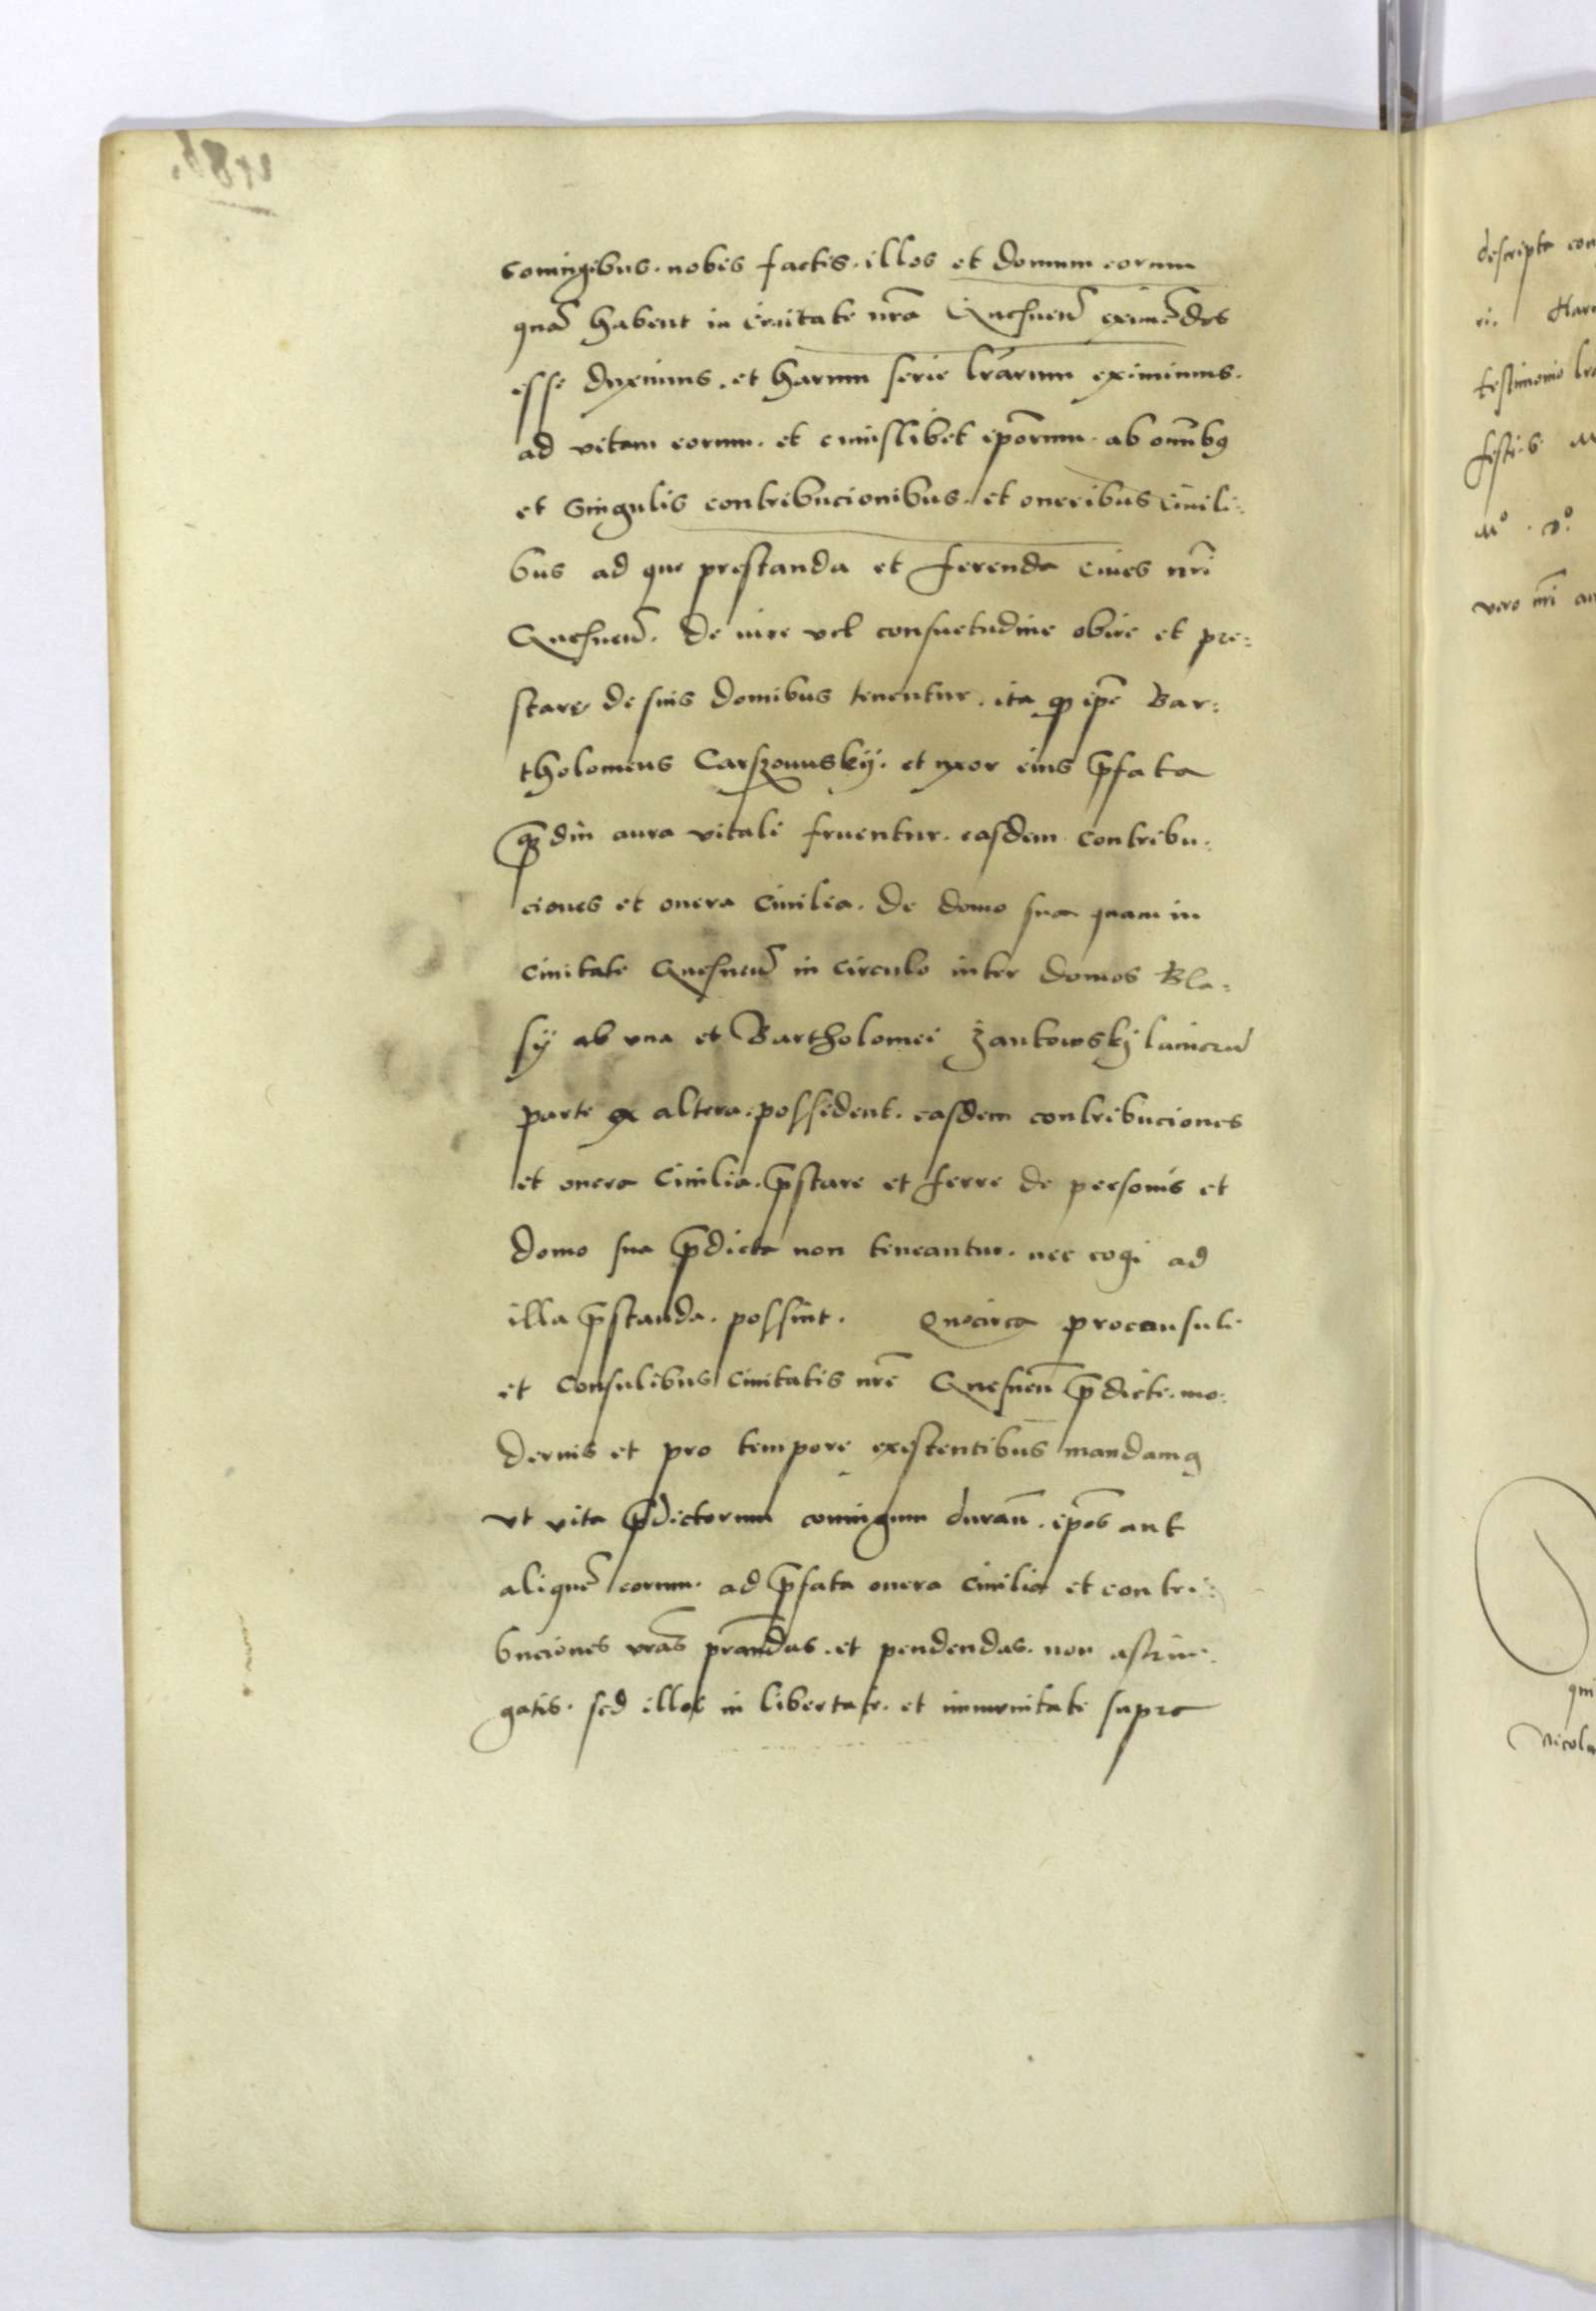 coniugibus. nobis factis. illos et domum eorum
quā habent in ciuitate nrā Gnesneñ eximēdos
esse duximus. et harum serie lrārum eximimus.
ad vitam eorum. et cuiuslibet ipōrum. ab omībꝰ
et singulis contribucionibus. et oneribus ciuili:
bus ad que prestanda et ferenda ciues nrī
Gnesneñ. de iure vel consuetudine obire et pre:
stare de suis domibus tenentur. ita ꝙ ipē Bar:
tholomeus Carszowskij. et vxor eius p̄fata
qᷓdiu aura vitali fruentur. easdem contribu:
ciones et onera ciuilia. de domo sua quam in
ciuitate Gnesneñ in circulo inter domos Bla:
sij ab vna et Bartholomei Żankowskj
parte ex altera. possident. easdem contribuciones
et onera ciuilia. p̄stare et ferre de personis et
domo sua p̄dicta non teneantur. nec cogi ad
illa p̄standa. possint. Quocirca proconsuli
et consulibus ciuitatis nrē Gnesneñ p̄dicte. mo:
dernis et pro tempore existentibus mandamꝰ
vt vita p̄dictorum coniugum durañ. ipōs aut
aliquē eorum. ad p̄fata onera ciuilia et contri:
buciones vrās prāndas. et pendendas. non astrin:
gatis. sed illos in libertate. et immunitate supra
descripta con
ri. Har
testimonio lrā
festi. S.
Mº . Dº
vero nrī an
qui
Nicola